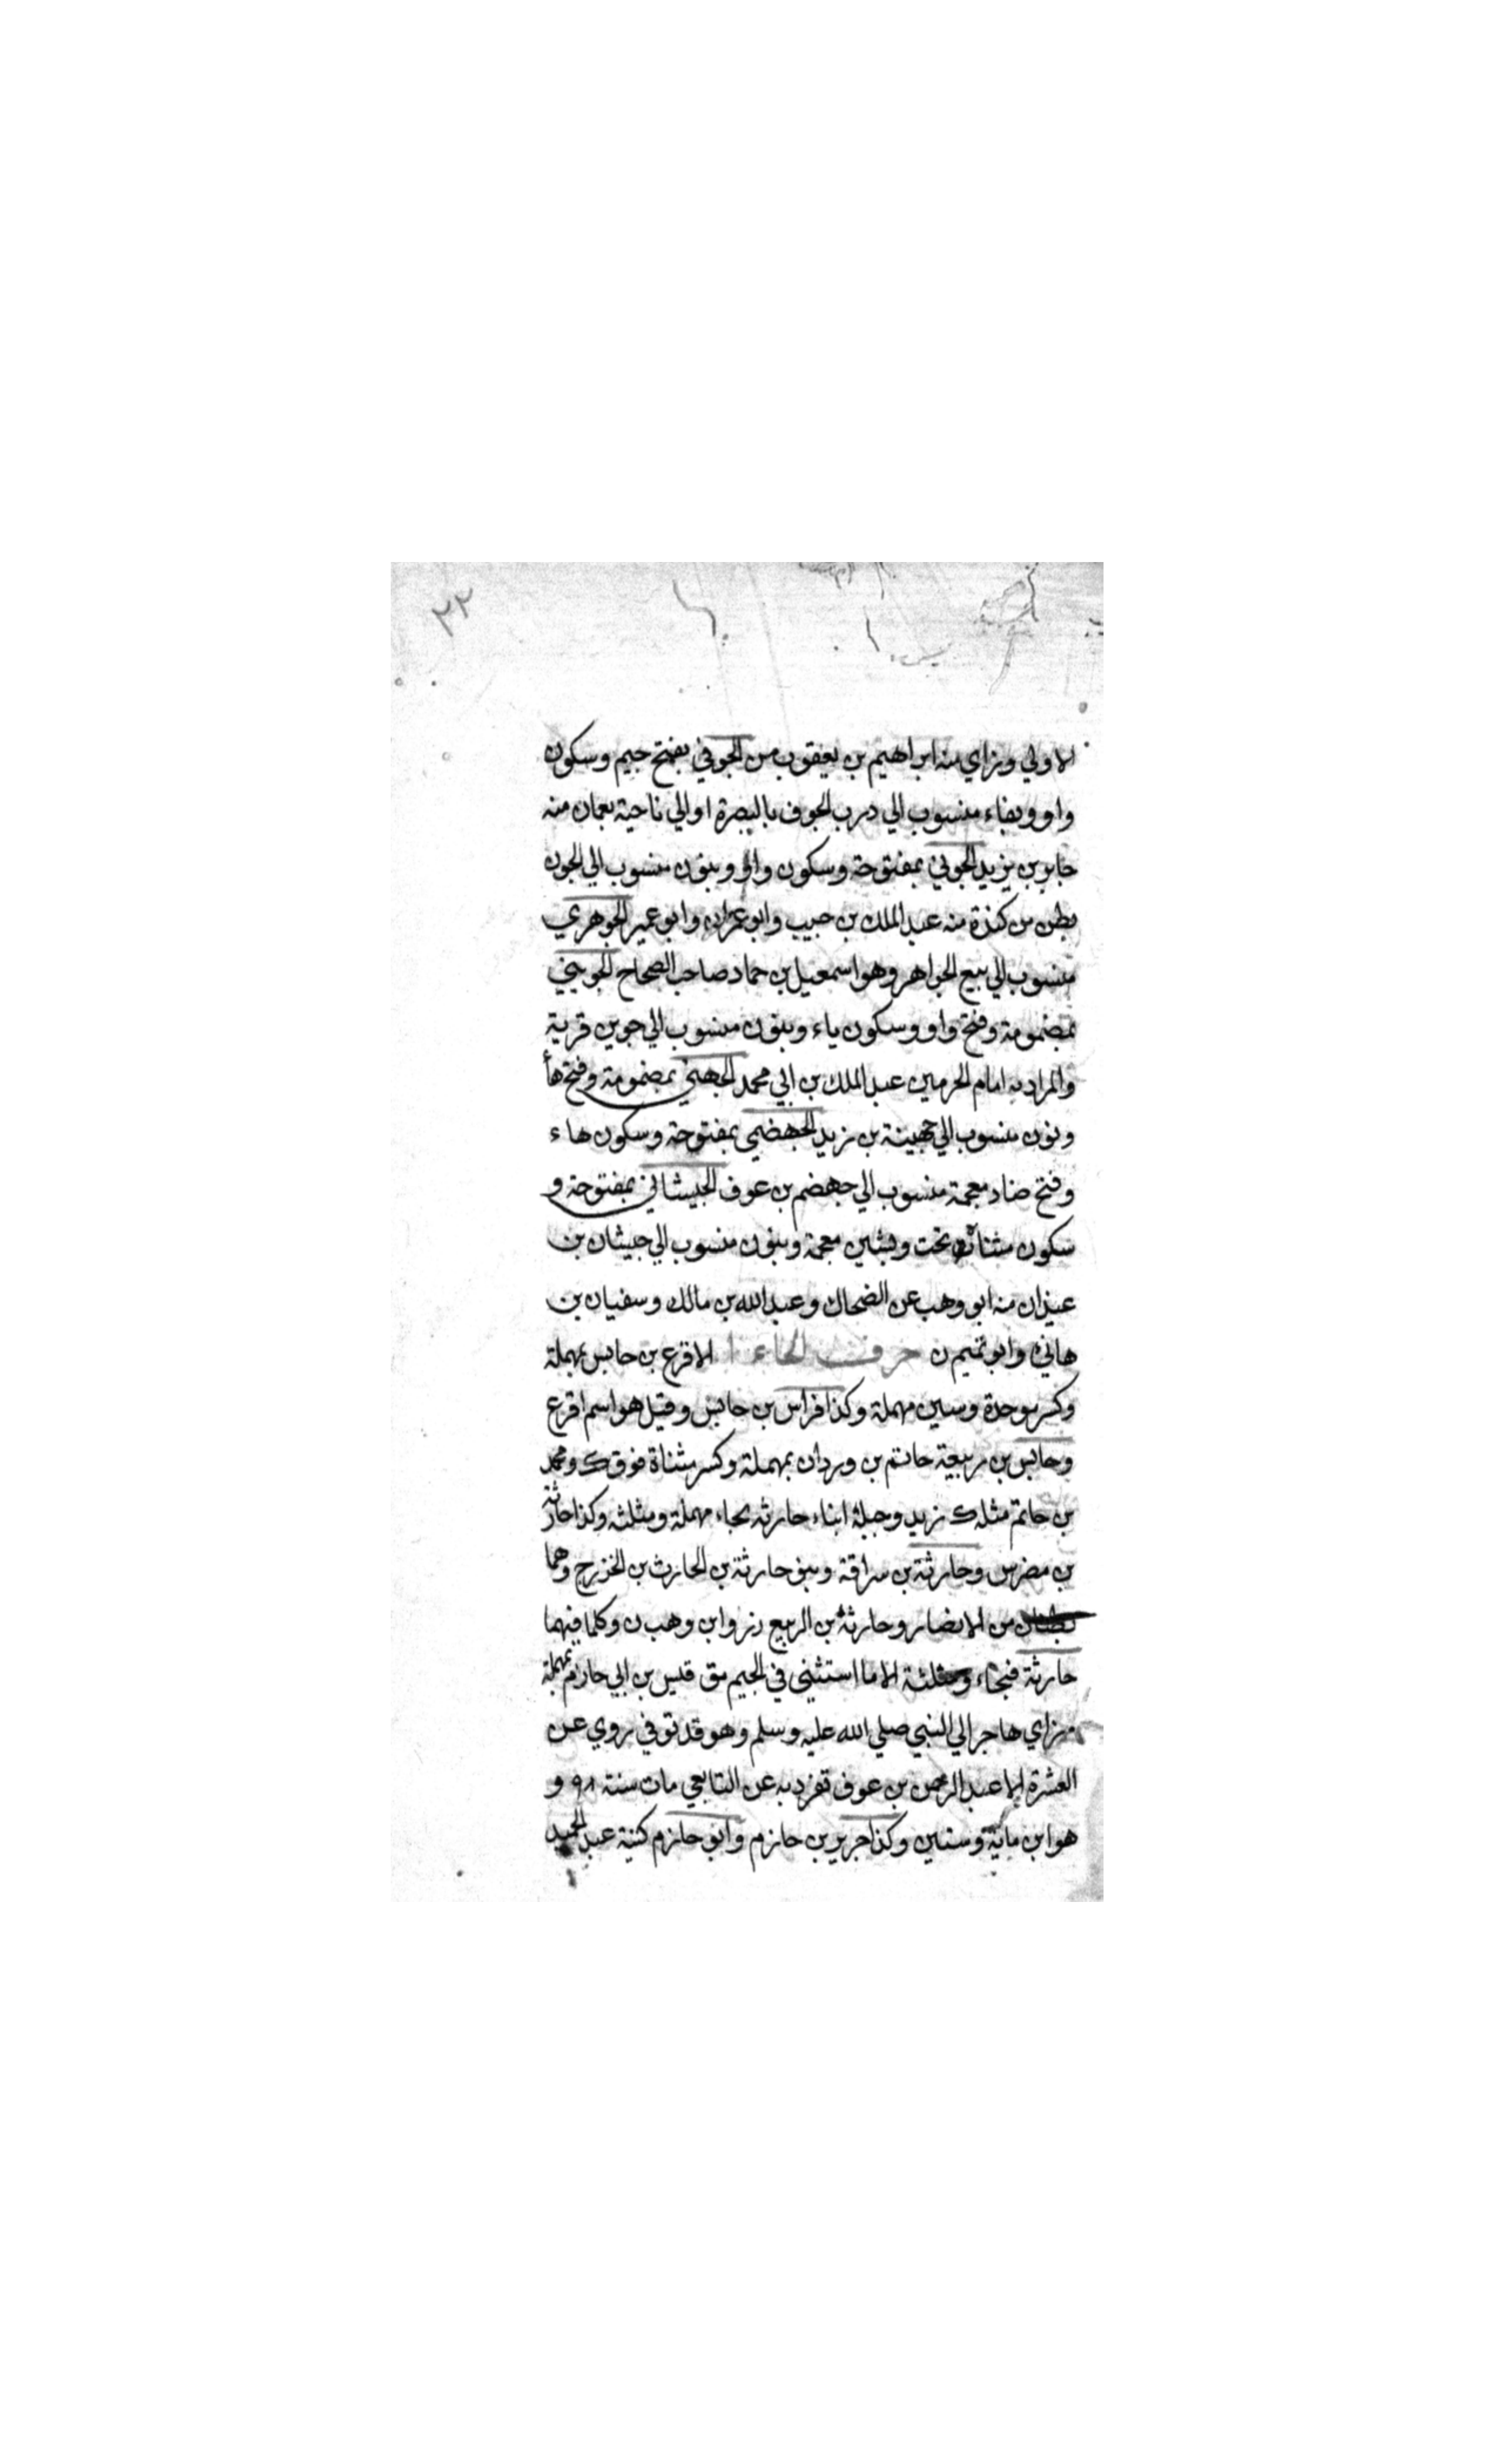 ٣٢
الاولي وبزاي منه ابراهيم بن يعقوب من الجوفي بفتح جيم وسكون
واو وبفاء منسوب الي درب الجوف بالبصرة او الي ناحية بعمان منه
جابر بن يزيد الجوني بمفتوحة وسكون واو وبنون منسوب الي الجون
بطن من كندة منه عبد الملك بن حبيب وابو عمران وابو عمير الجوهري
منسوب الي بيع الجواهر وهو اسمعيل بن حماد صاحب الصحاح الجويني
بمضمومة وفتح واو وسكون ياء وبنون منسوب الي جوين قرية
والمراد به امام الحرمين عبد الملك بن ابي محمد الجهني بمضمومة وفتح هأ
ونون منسوب الي جهينة بن زيد الجهضمي بمفتوحة وسكون هاء
وفتح ضاد معجمة منسوب الي جهضم بن عوف الجيشاني بمفتوحة و
سكون مثناة تحت وبشين معجمة وبنون منسوب الي جيشان بن
عيذان منه ابو وهب عن الضحاك وعبد الله بن مالك وسفيان بن
هانئ وابو تميم ن حرف الحاء ا الاقرع بن حابس بمهملة
وكسر موحدة وسين مهملة وكذا فراس بن حابس وقيل هو اسم اقرع
وحابس بن ربيعة حاتم بن وردان بمهملة وكسر مثناة فوق ك ومحمد
بن حاتم مثله ك زيد وجبلة ابناء حارثه بحاء مهملة ومثلثه وكذا حارثة
بن مضرس وحارثة بن سراقة وبنو حارثة بن الحارث بن الخزرج وهما
بطنان من الانصار وحارثة بن الربيع ن وابن وهب ن وكلما فيهما
حارثة فبحاء ومثلثة الا ما استثنى في الجيم مق قيس بن ابي حازم بمهملة
وزاي هاجر الي النبي صلي الله عليه وسلم وهو قد توفي روي عن
العشرة الا عبد الرحمن بن عوف تفرد به عن التابعي مات سنة ٩٨ و
هو ابن ماية وستين وكذا جرير بن حازم وابو حازم كنية عبد الحميد